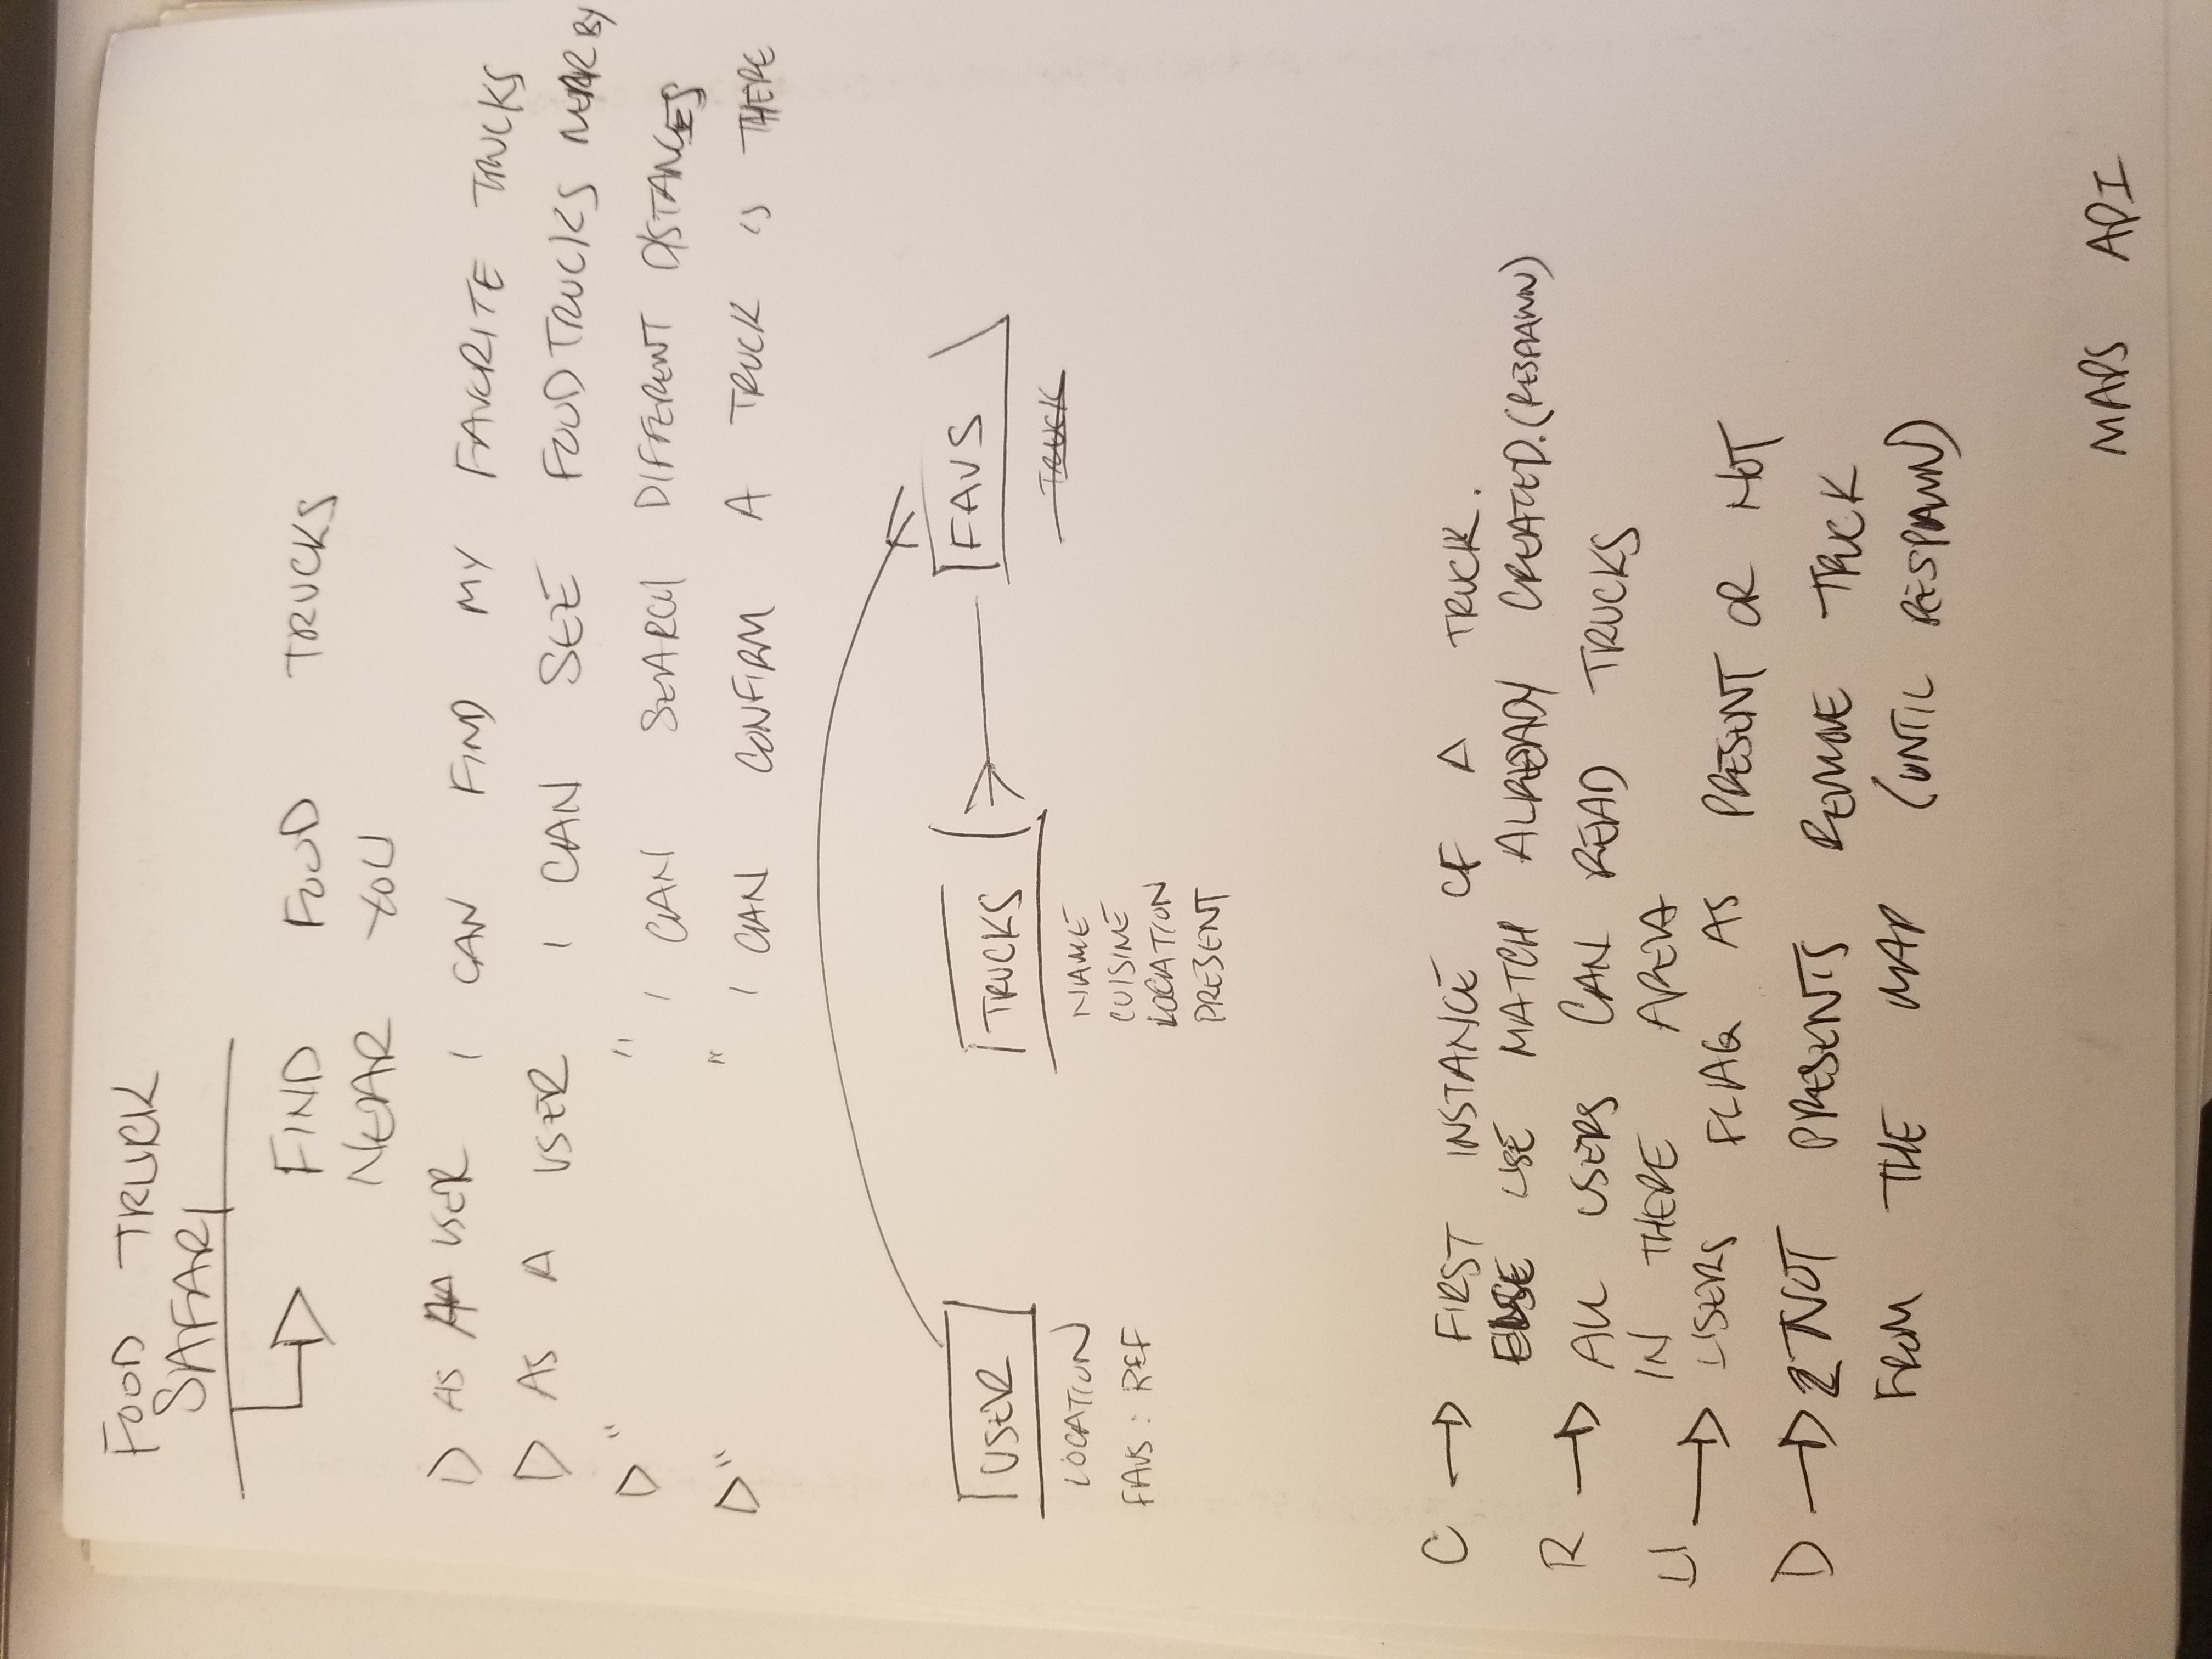 FOOD TRUCK
SAFARI
FIND FOOD TRUCKS
NEAR YOU
AS A USER I CAN FIND MY FAVORITE TRUCKS
AS A USER I CAN SEE FOOD TRUCKS NEAR BY
" " I CAN SEARCH DIFFERENT DISTANCES
" " I CAN CONFIRM A TRUCK IS THERE
USER TRUCKS FAVS
LOCATION
FAVS: REF
NAME
CUISINE
LOCATION
PRESENT
TRUCK
C → FIRST INSTANCE OF A TRUCK.
ELSE USE MATCH ALREADY CREATED. (RESPAWN)
R → ALL USERS CAN READ TRUCKS
IN THERE AREA
U → USERS FLAG AS PRESENT OR NOT
D → 2 NOT PRESENTS REMOVE TRUCK
FROM THE MAP (UNTIL RESPAWN)
MAPS API